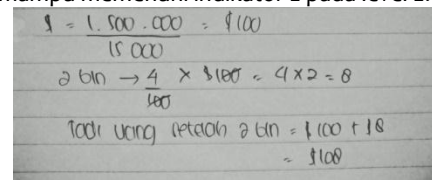 $ = 1.500.000 / 15 000 = $100
2 bln → 4/100 × $100 = 4×2 = 8
Jadi uang setelah 2 bln = $100 + $8
= $108